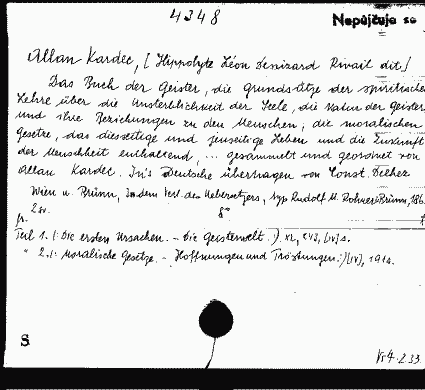 4348
Nepůjčuje se
Allan Kardec, [Hippolyte Léon Denizard Rivail dit.]
Das Buch der Geister, die Grundsätze der spiritischen
Lehre über die Unsterblichkeit der Seele, die Natur der Geister
und ihre Beziehungen zu den Menschen; die moralischen
Gesetze, das diesseitige und jenseitige Leben und die Zukunft
der Menschheit enthaltend, ... gesammelt und geordnet von
Allan Kardec. In's Deutsche übertragen von Const. Delhez
Wien u. Brünn, In dem Verl. des Uebersetzers, typ Rudolf M. Rohrer Brünn, 186
2 sv. 8°
fr.
Teil 1. (: Die ersten Ursachen. - Die Geisterwelt. :) XL, 243, [IV] s.
" 2. (: Moralische Gesetze. - Hoffnungen und Tröstungen. :) [IV], 191 s.
S